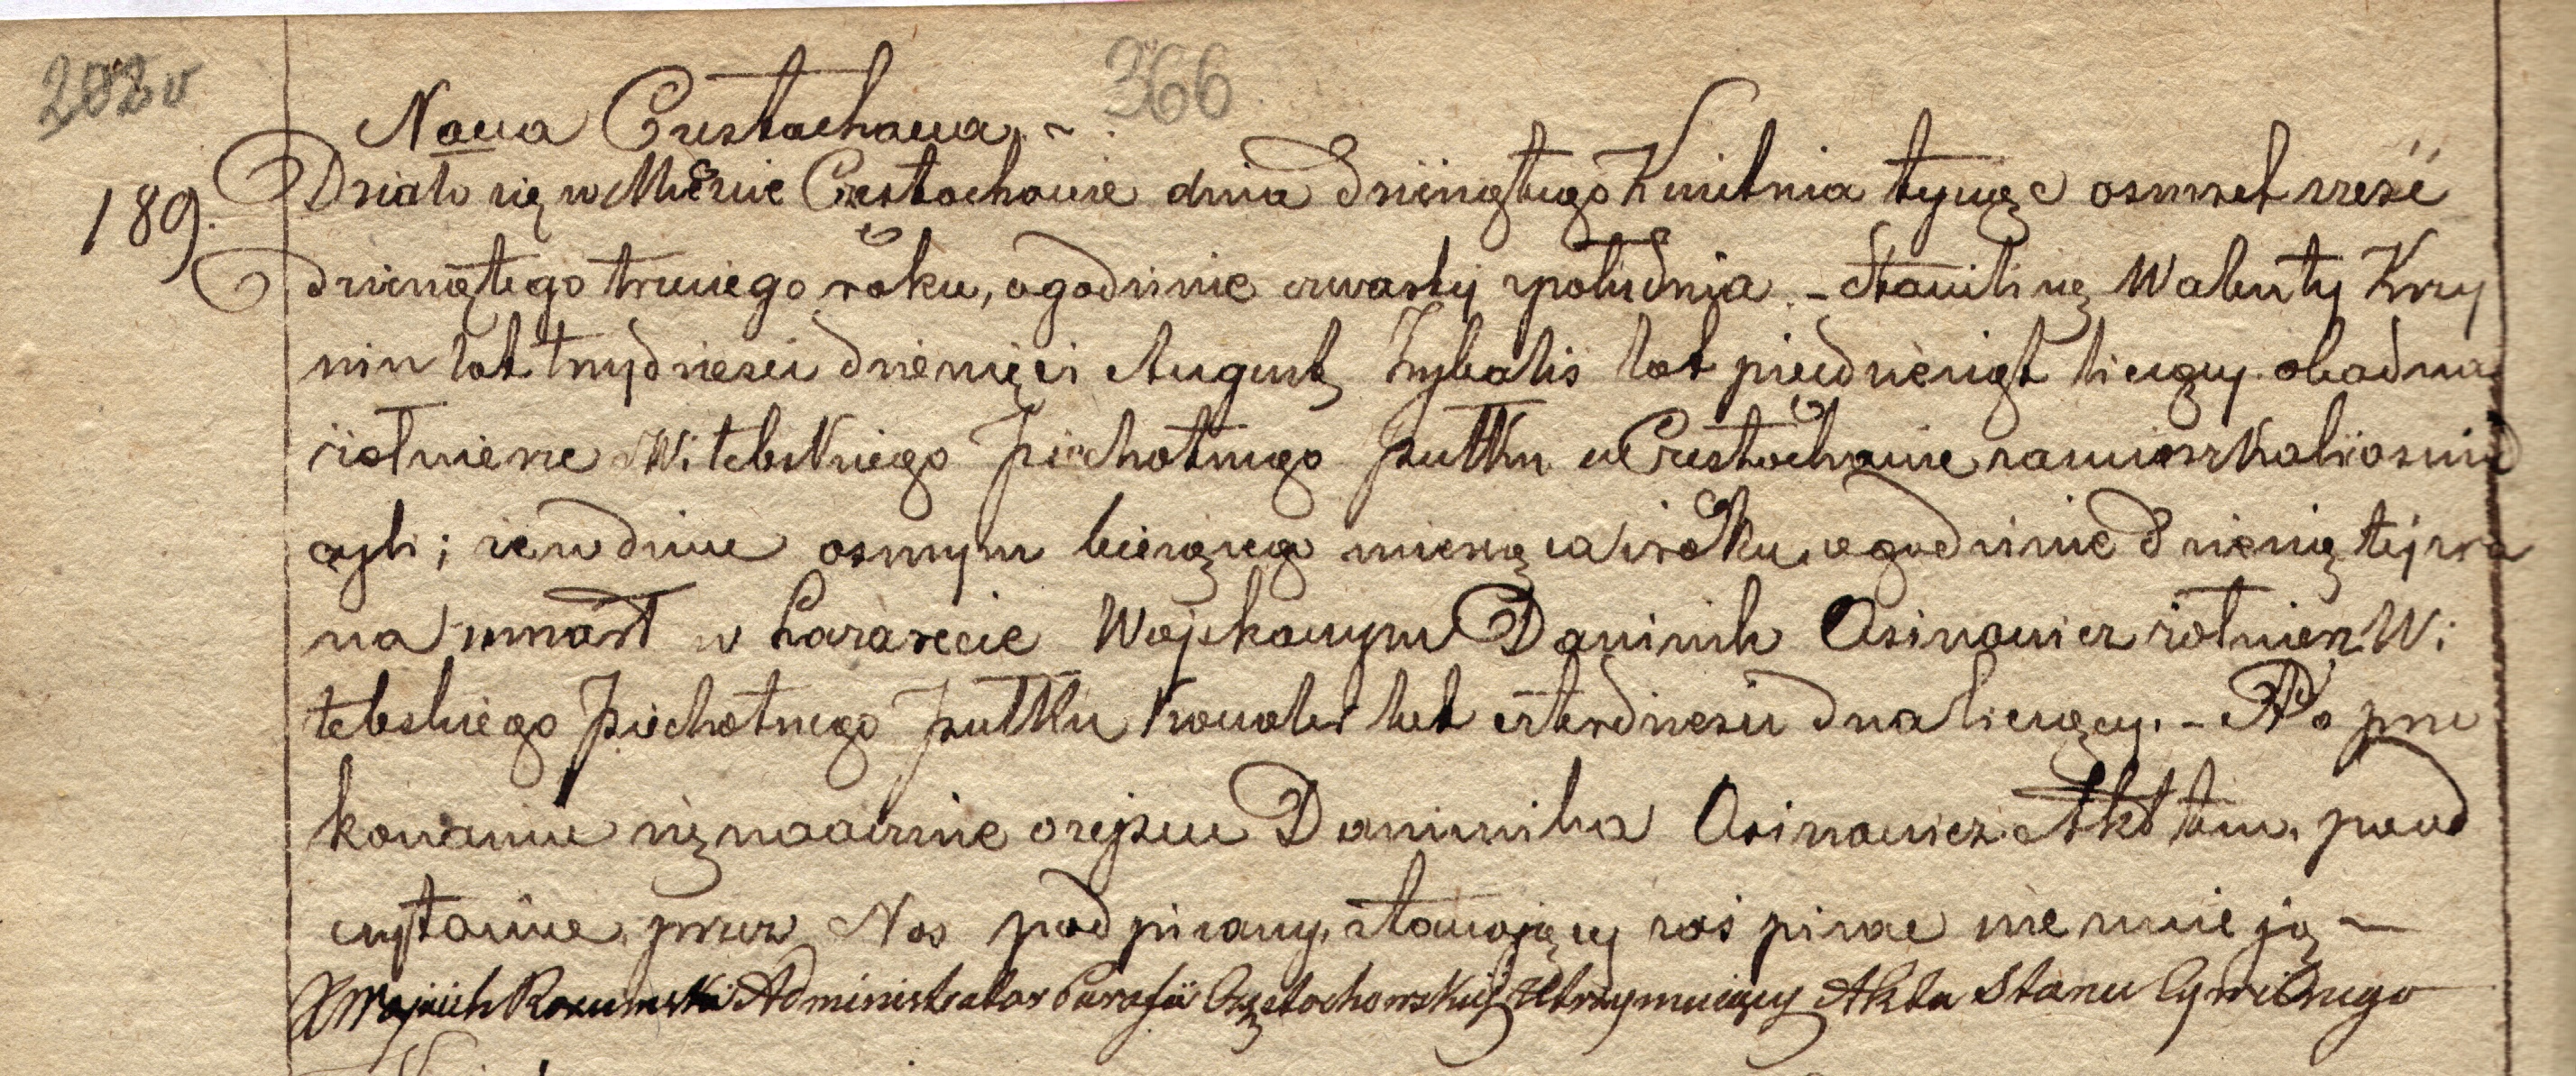 202v
366
Nowa Czestochowa. ~
189. Działo się w Mieście Czestochowie dnia dziewiątego Kwietnia tysiąc osmset sześć
dziesiątego trzeciego roku, o godzinie czwarty z południa. – Stawili się Walenty Krzy
lat trzydzieści dziewięć i August lat piędziesiąt liczący obadwa
żołnierze Witebskiego Piechotnego Pułku w Czestochowie zamieszkali i oswiad
czyli; że w dniu osmym bieżącego miesiąca i roku, o godzinie dziewiątej zra
na umarł w Lazarecie Wojskowym Daninik Osinowicz żołnierz Wi
tebskiego Piechotnego Pułku Kowaler lat czterdzieści dwa liczący. – Po prze
konaniu się naocznie o zejściu Daninika Osinowicz Akt ten po od
czytaniu przez Nas podpisany, stawający zaś pisac nie umieją –
X Wojciech Administrator Parafii Częstochowskiej Utrzymuiący Akta Stanu Cywilnego